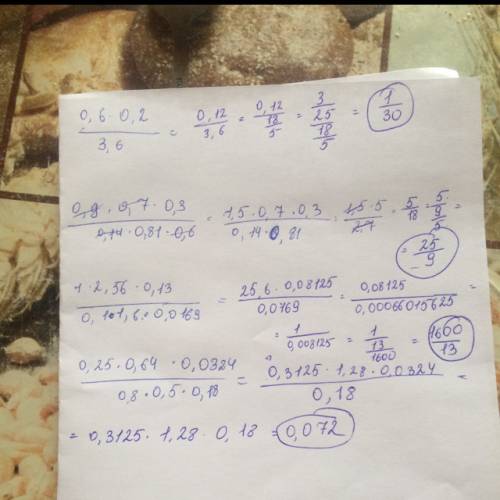 0,6 · 0,2 / 3,6 = 0,12 / 3,6 = 0,12 / (18/5) = (3/25) / (18/5) = 1/30
0,9 · 0,7 · 0,3 / 0,14 · 0,81 · 0,6 = 1,5 · 0,7 · 0,3 / 0,14 · 0,81 = 1,5 · 5 / 2,7 = 5/18 = 5 / (9/5) =
= 25/9
1 · 2,56 · 0,13 / 0,1 · 1,6 · 0,0169 = 25,6 · 0,08125 / 0,0769 = 0,08125 / 0,00066015625 =
= 1 / 0,008125 = 1 / (13/1600) = 1600/13
0,25 · 0,64 · 0,0324 / 0,8 · 0,5 · 0,18 = 0,3125 · 1,28 · 0,0324 / 0,18 =
= 0,3125 · 1,28 · 0,18 = 0,072